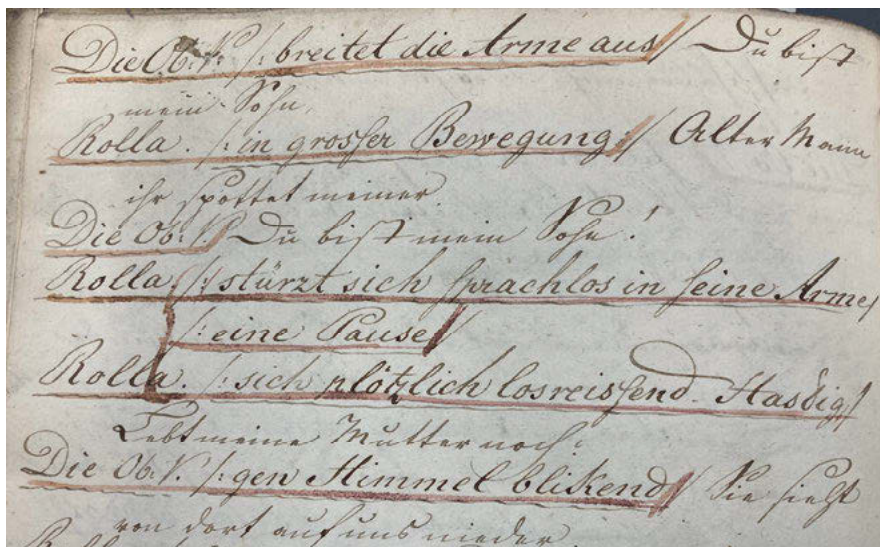 Die Ob: V: /: breitet die Arme aus :/ Du bist
mein Sohn.
Rolla. /: in grosser Bewegung :/ Alter Mann
ihr spottet meiner.
Die Ob: V. Du bist mein Sohn!
Rolla. /: stürzt sich sprachlos in seine Arme /
/: eine Pause /
Rolla. /: sich plötzlich losreissend - Hastig /
Lebt meine Mutter noch:
Die Ob: V. /: gen Himmel blikend :/ Sie sieht
von dort auf uns nieder.